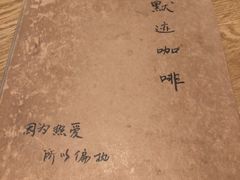 默述咖啡
因为热爱
所以偏执